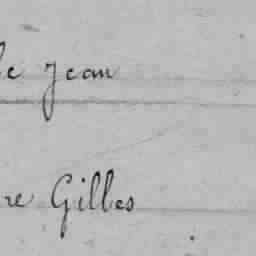 le Jean
re Gilles